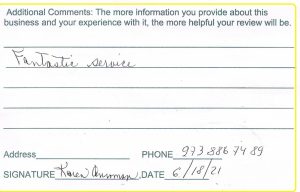 Additional Comments: The more information you provide about this
business and your experience with it, the more helpful your review will be.
Fantastic service
Address PHONE 973 886 7489
SIGNATURE Karen DATE 6/18/21